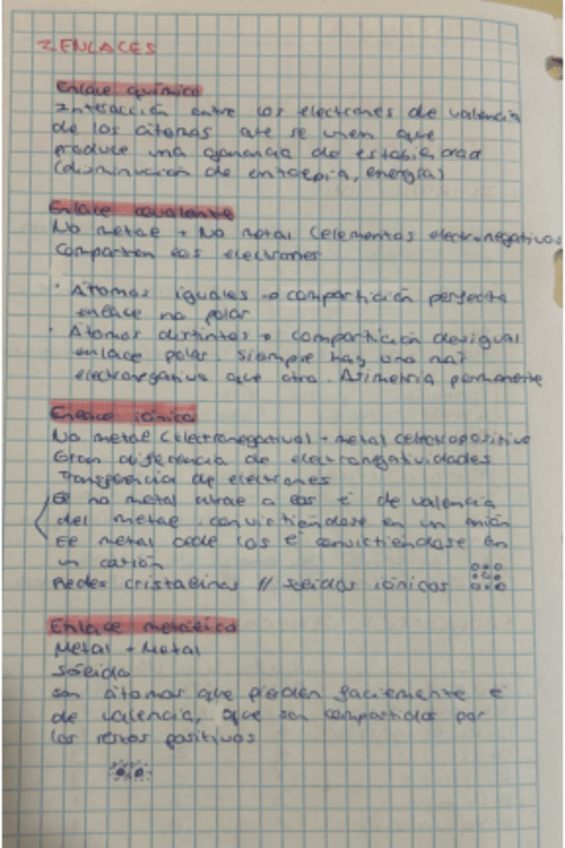 2 ENLACES
Enlace químico
Interacción entre los electrones de valencia
de los átomos que se unen que
produce una ganancia de estabilidad
(disminución de entalpia, energía)
Enlace covalente
No metal + No metal (elementos electronegativos
Comparten los electrones
· Átomos iguales → compartición perfecta
enlace no polar
· Átomos distintos → compartición desigual
enlace polar. Siempre hay uno más
electronegativo que otro. Asimetría permanente
Enlace iónico
No metal (electronegativo) - metal (electropositivo
Gran diferencia de electronegatividades
Transferencia de electrones
El no metal atrae a los e⁻ de valencia
del metal convirtiendose en un anión
El metal cede los e⁻ convirtiendose en
un catión
Redes cristalinas // sólidos iónicos
Enlace metálico
Metal + Metal
Sólido
Son átomos que pierden facilmente e⁻
de valencia, que son compartidos por
los restos positivos